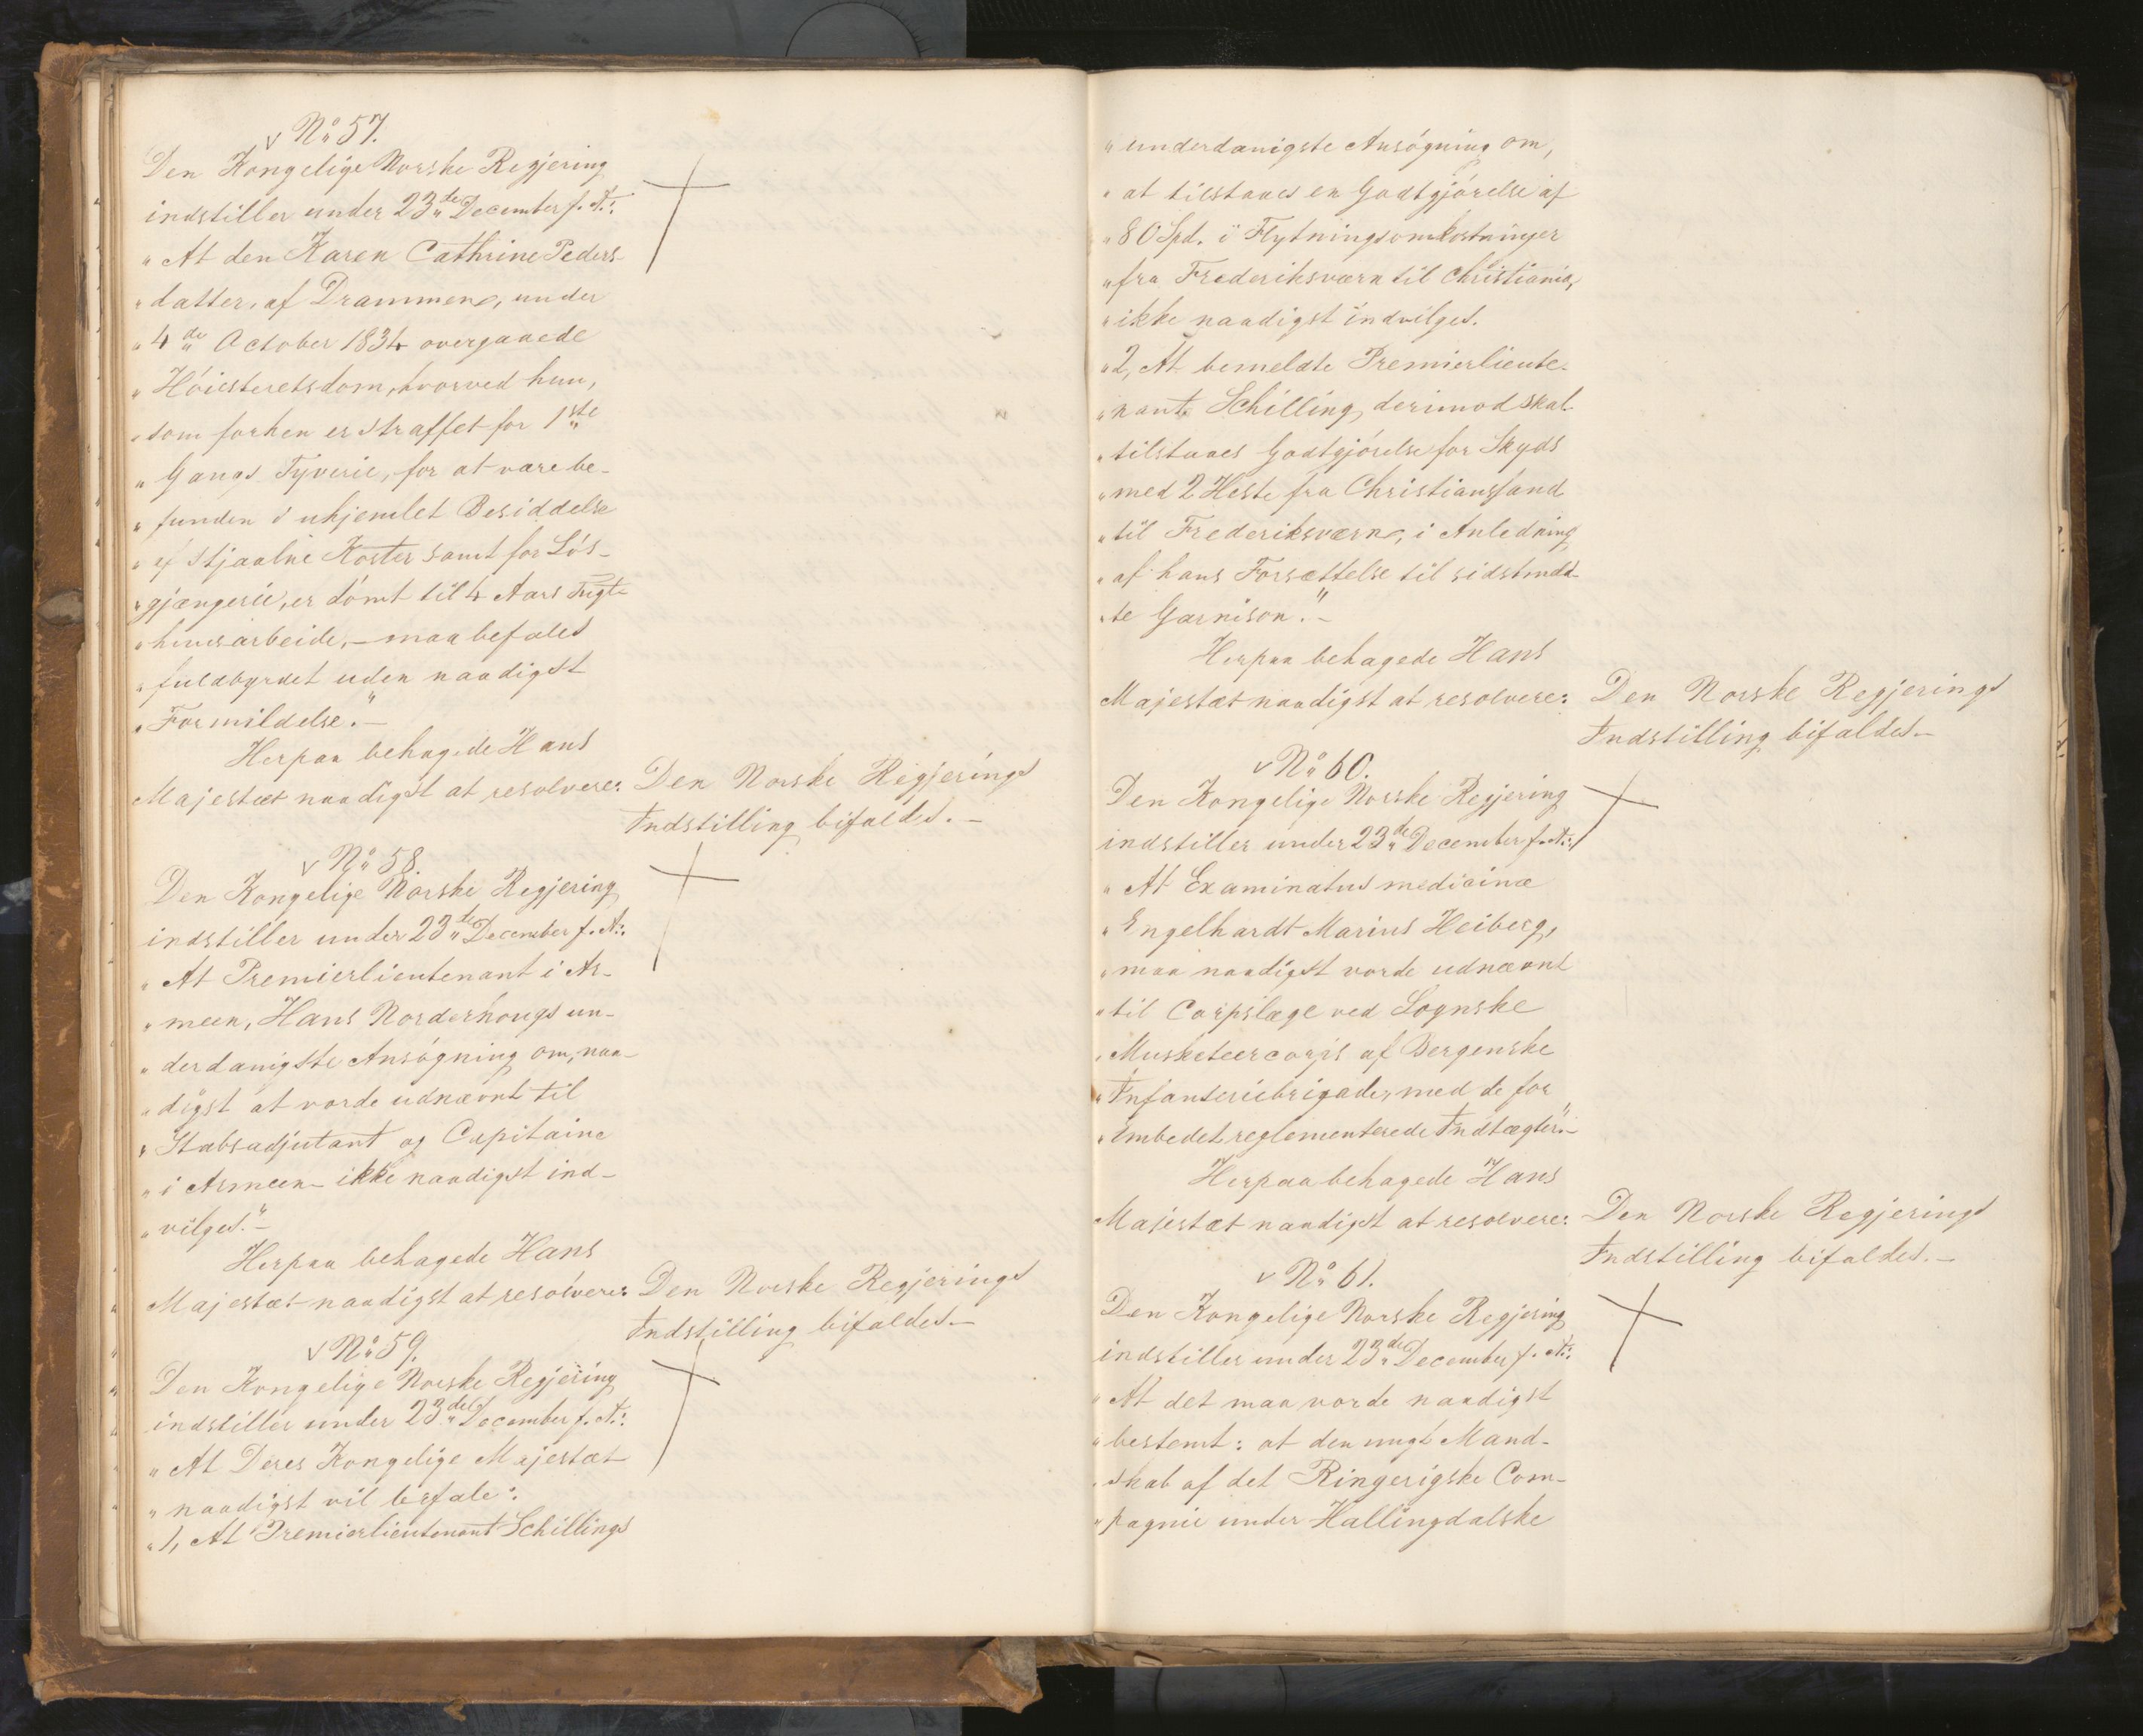 № 57.
Den Kongelige Norske Regjering
indstiller under 23de December f. A.:
"At den Karen Cathrine Peders-
"datter, af Drammen, under
"4de October 1834 overgaaede
"Höiesteretsdom, hvorved hun,
"som forhen er straffet for 1ste
"Gangs Tyverie, for at være be-
"funden i uhjemlet Besiddelse
"af stjaalne Koster samt for Lös-
"gjængerie, er dömt til 4 Aars Tugt-
"huusarbeide, - maa befales
"fuldbyrdet uden naadigst
"Formildelse." -
Herpaa behagede Hans
Majestæt naadigst at resolvere: Den Norske Regjerings
Indstilling bifaldes. -
№ 58.
Den Kongelige Norske Regjering
indstiller under 23de December f. A.:
"At Premierlieutenant i Ar-
"meen, Hans Norderhougs un-
"derdanigste Ansögning om, naa-
"digst at vorde udnævnt til
"Stabsadjutant og Capitaine
"i Armeen - ikke naadigst ind-
"vilges." -
Herpaa behagede Hans
Majestæt naadigst at resolvere: Den Norske Regjerings
Indstilling bifaldes. -
№ 59.
Den Kongelige Norske Regjering
indstiller under 23de December f. A.:
"At Deres Kongelige Majestæt
"naadigst vil befale:
"1, At Premierlieutenant Schillings
"underdanigste Ansögning om,
"at tilstaaes en Godtgjörelse af
"80 Spd. i Flytningsomkostninger
"fra Frederiksværn til Christiania,
"ikke naadigst indvilges.
"2, At bemeldte Premierlieute-
"nant Schilling, derimod skal
"tilstaaes Godtgjörelse for Skyds
"med 2 Heste fra Christianssand
"til Frederiksværn, i Anledning
"af hans Forsættelse til sidstmeld-
"te Garnison." -
Herpaa behagede Hans
Majestæt naadigst at resolvere: Den Norske Regjerings
Indstilling bifaldes. -
№ 60.
Den Kongelige Norske Regjering
indstiller under 23de December f. A.:
"At Examinatus medicinæ
"Engelhardt Marius Heiberg,
"maa naadigst vorde udnævnt
"til Corpslæge ved Sognske
"Musketeercorps af Bergenske
"Infanteriebrigade, med de for
"Embedet reglementerede Indtægter." -
Herpaa behagede Hans
Majestæt naadigst at resolvere: Den Norske Regjerings
Indstilling bifaldes. -
№ 61.
Den Kongelige Norske Regjering
indstiller under 23de December f. A.:
"At det maa vorde naadigst
"bestemt: at den unge Mand-
"skab af det Ringerigske Com-
"pagnie under Hallingdalske